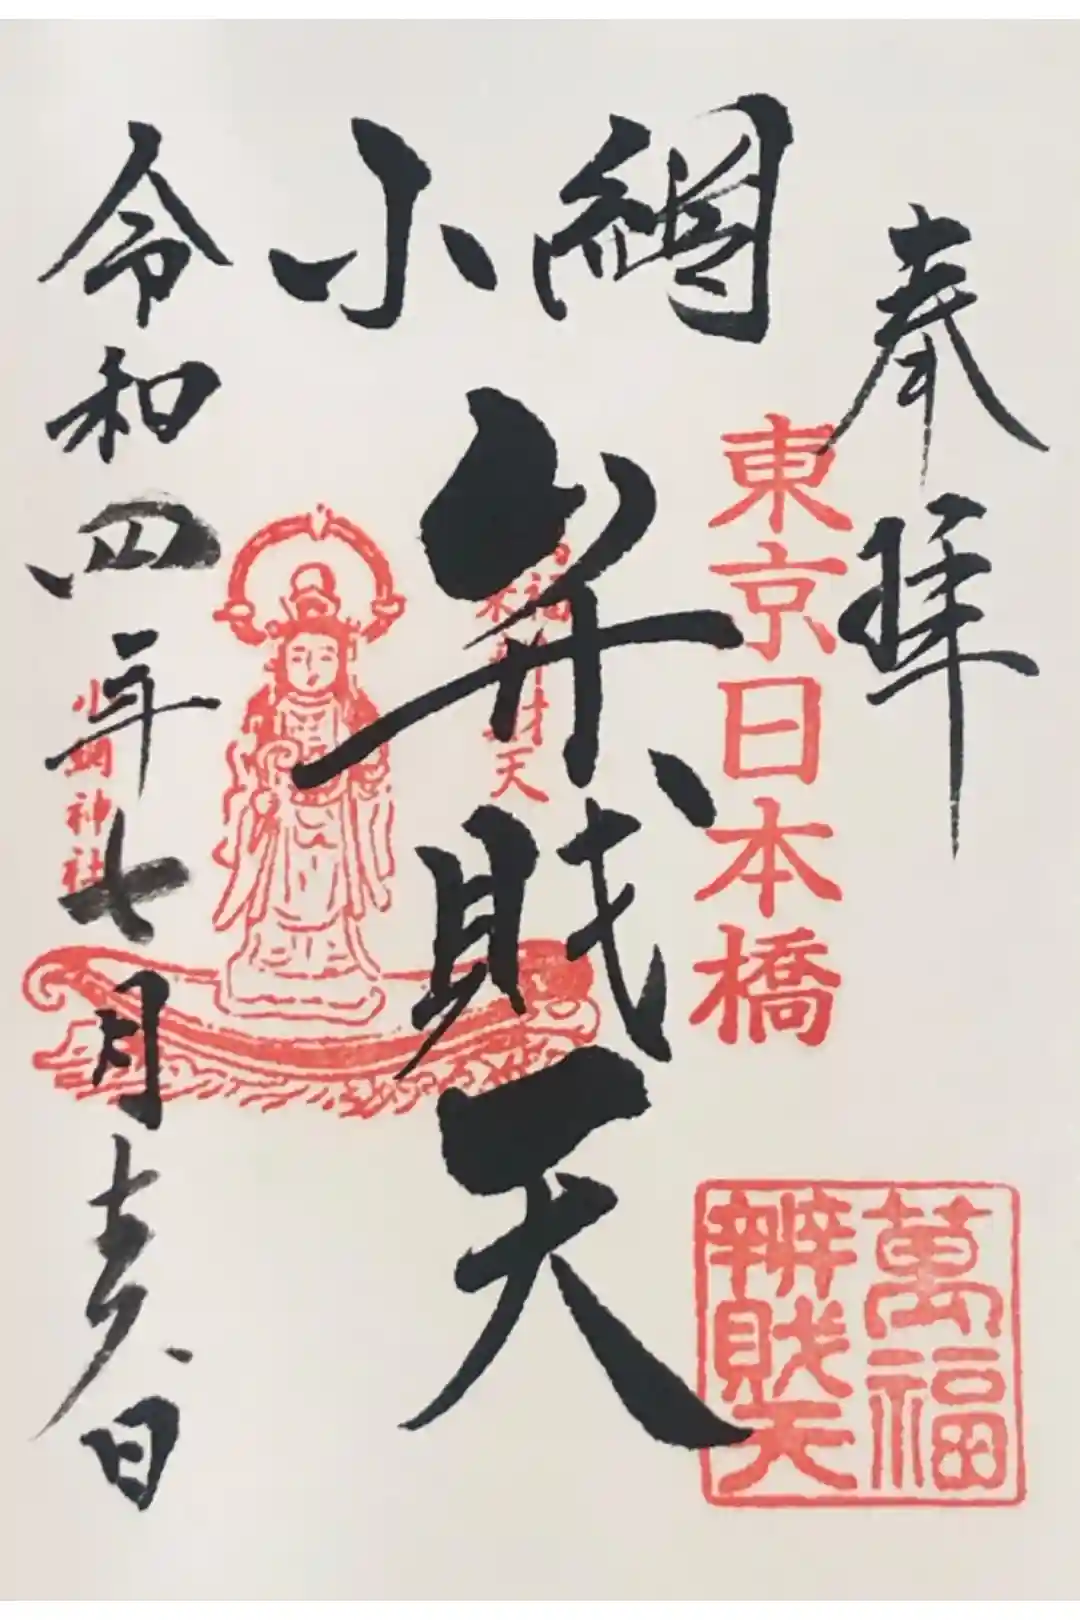 奉拝
東京日本橋
萬福
辨戝天
小網
弁戝天
小網神社
令和四年七月十六日